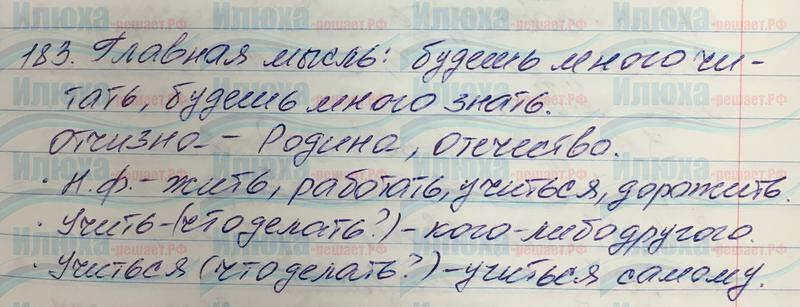 183. Главная мысль: будешь много чи-
тать, будешь много знать.
Отчизна – Родина, отечество.
· Н.ф. – жить, работать, учиться, дорожить.
· Учить – (что делать?) – кого-либо другого.
· Учиться (что делать?) – учиться самому.